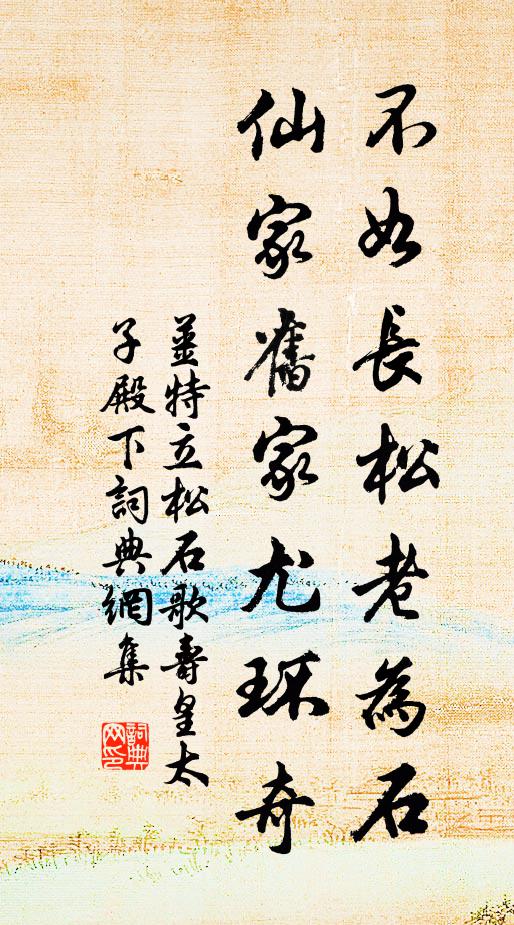 不如長松老為石
仙家舊家尤環奇
姜特立松石歌壽皇太
子殿下詞典網集
詞典
网印